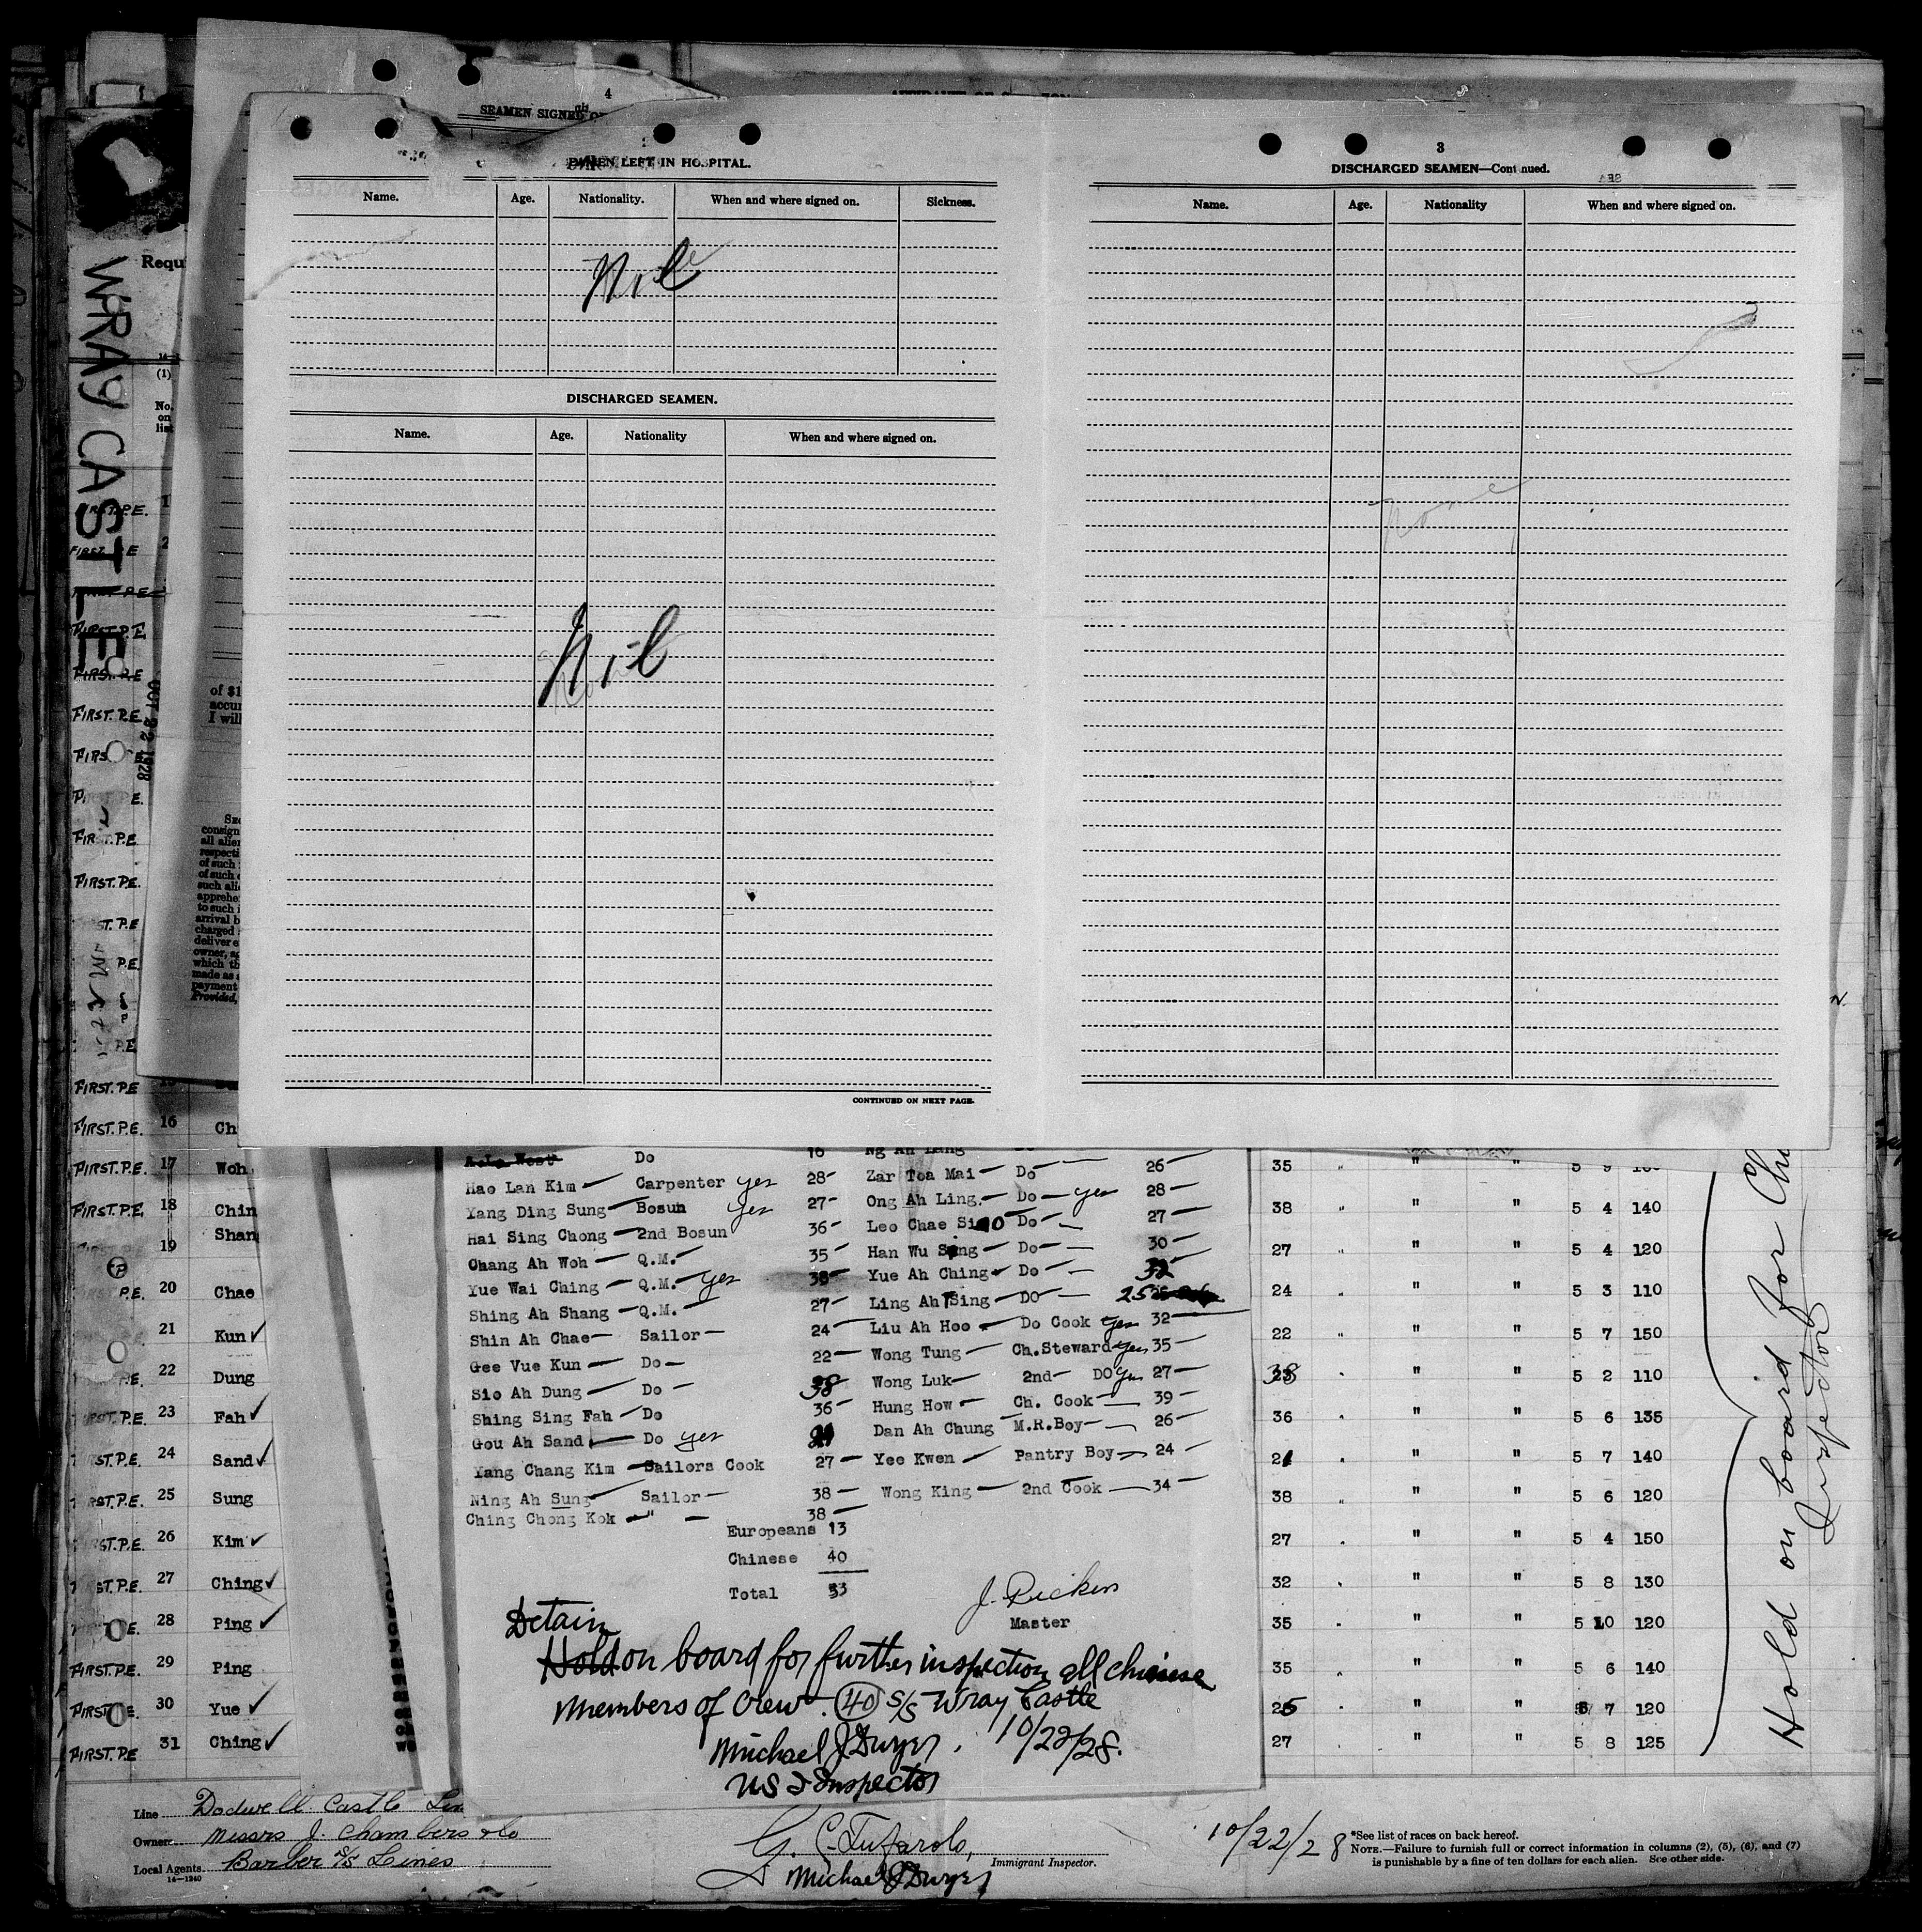 4
SEAMEN SIGNED
LEFT IN HOSPITAL.
Name. Age. Nationality. When and where signed on. Sickness.
Nil
DISCHARGED SEAMEN.
Name. Age. Nationality When and where signed on.
Nil
CONTINUED ON NEXT PAGE.
3
DISCHARGED SEAMEN—Continued.
Name. Age. Nationality When and where signed on.
None
WRAY CASTLE
Requ
(1)
No. on list
OCT 22 1928
of $1
accur
I will
consign
all alien
respecti
of such
of such
such ali
apprehe
to such i
arrival b
charged
deliver e
owner, ag
which th
made as a
payment
Provided,
FIRST. P.E. 16 Ch
FIRST. P.E. 17 Woh
FIRST. P.E. 18 Chin
19 Shan
P.E. 20 Chae
21 Kun ✓
P.E. 22 Dung
FIRST. P.E. 23 Fah ✓
FIRST. P.E. 24 Sand ✓
FIRST. P.E. 25 Sung
FIRST. P.E. 26 Kim ✓
FIRST. P.E. 27 Ching ✓
28 Ping ✓
FIRST. P.E. 29 Ping
FIRST 30 Yue ✓
FIRST. P.E 31 Ching ✓
A.L. West Do 16
Hao Lan Kim Carpenter yes 28
Yang Ding Sung Bosun yes 27
Hai Sing Chong 2nd Bosun 36
Chang Ah Woh Q.M. 35
Yue Wai Ching Q.M. yes 38
Shing Ah Shang Q.M. 27
Shin Ah Chae Sailor 24
Gee Vue Kun Do 22
Sio Ah Dung Do 38
Shing Sing Fah Do 36
Gou Ah Sand Do yes
Yang Chang Kim Sailors Cook 27
Ning Ah Sung Sailor 38
Ching Chong Kok " 38
Ng Ah Lang
Zar Toa Mai Do 26
Ong Ah Ling. Do yes 28
Leo Chae Do 27
Han Wu Do 30
Yue Ah Ching Do 32
Ling Ah Sing DO 25
Liu Ah Hoo Do Cook yes 32
Wong Tung Ch.Steward yes 35
Wong Luk 2nd DO yes 27
Hung How Ch. Cook 39
Dan Ah Chung M.R.Boy 26
Yee Kwen Pantry Boy 24
Wong King 2nd Cook 34
Europeans 13
Chinese 40
Total 53
J. Picken
Master
Detain
Hold on board for further inspection all chinese
members of crew. 40 S/S Wray Castle
Michael J Dwyer. 10/22/28.
US I Inspector
35 " " 5 9
38 " " 5 4 140
27 " " 5 4 120
24 " " 5 3 110
22 " " 5 7 150
38 " " 5 2 110
36 " " 5 6 135
21 " " 5 7 140
38 " " 5 6 120
27 " " 5 4 150
32 " " 5 8 130
35 " " 5 10 120
35 " " 5 6 140
25 " " 7 120
27 " " 5 8 125
Hold on board for Chi
Inspector
Line Dodwell Castle Line
Owners Messrs J. Chambers & Co
Local Agents Barber S/S Lines
14—1240
G. C. Tufarolo,
Immigrant Inspector.
Michael J Dwyer
10/22/28
*See list of races on back hereof.
NOTE.—Failure to furnish full or correct information in columns (2), (5), (6), and (7)
is punishable by a fine of ten dollars for each alien. See other side.